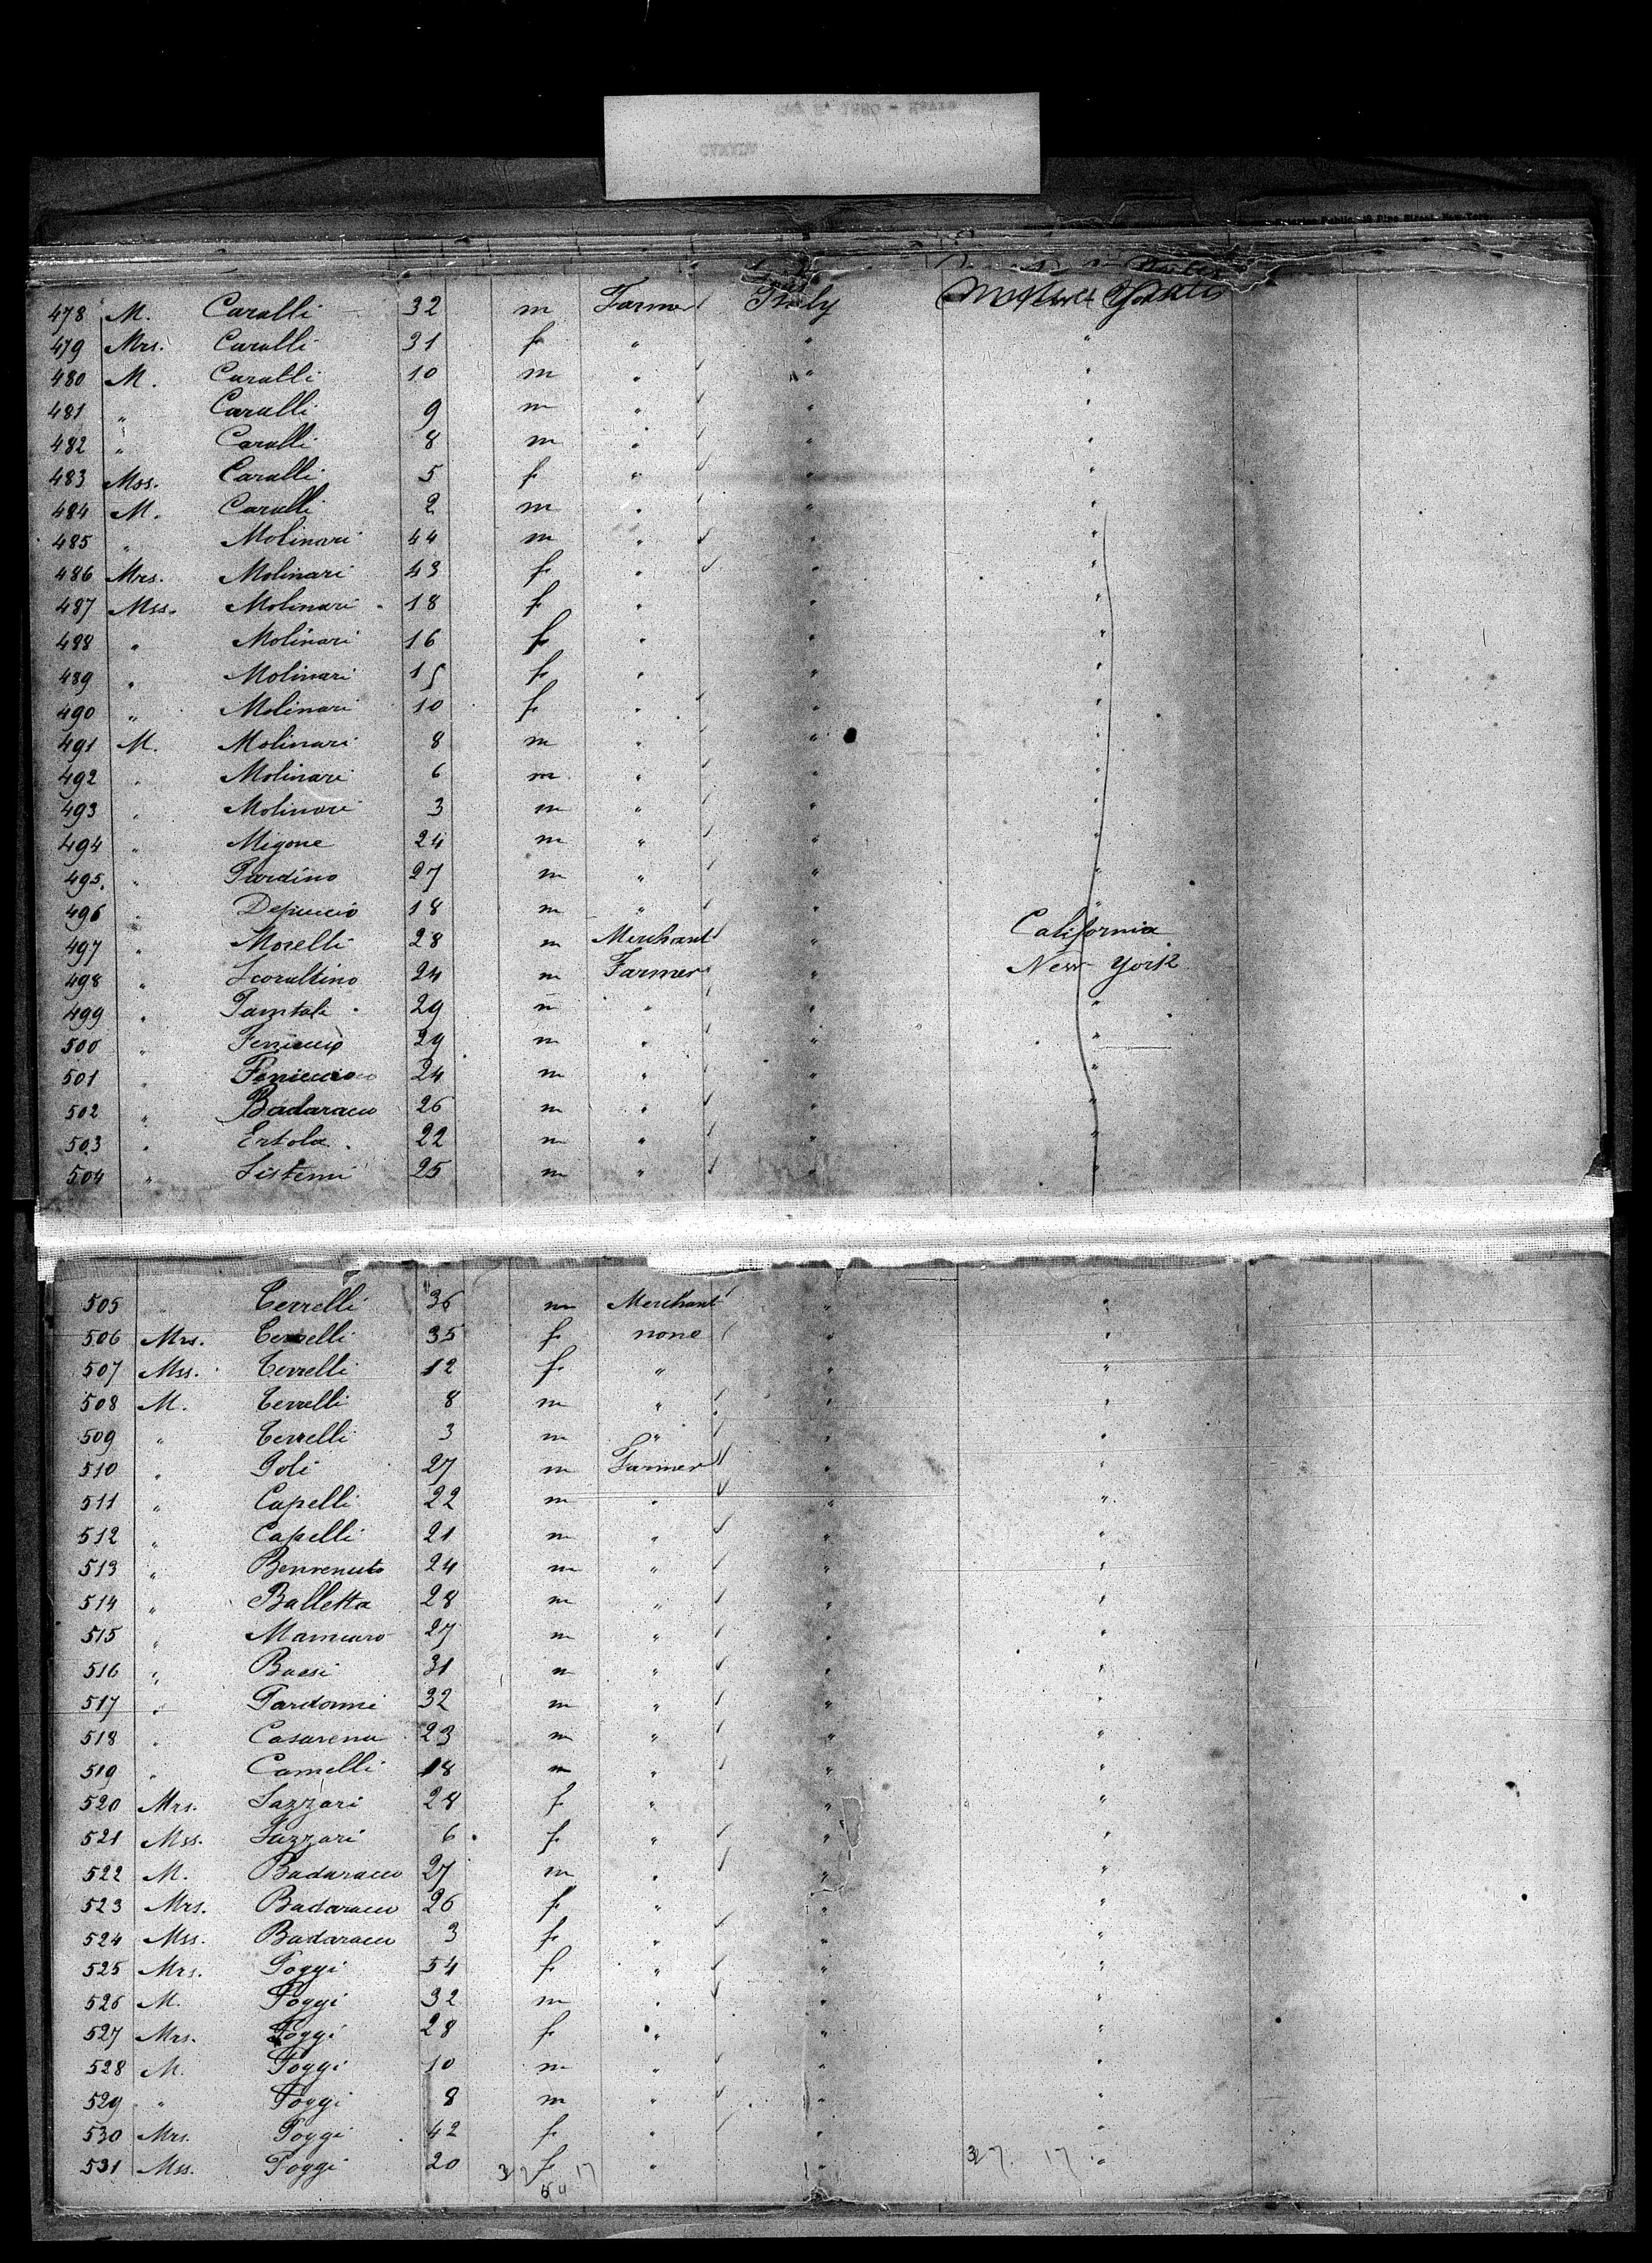 Notaries Public, 18 Pine Street, New York
478 M. Caralli 32 m Farmer Italy
479 Mrs. Caralli 31 f " " "
480 M. Caralli 10 m " " "
481 " Caralli 9 m " " "
482 " Caralli 8 m " " "
483 Mss. Caralli 5 f " " "
484 M. Caralli 2 m " " "
485 " Molinari 44 m " " "
486 Mrs. Molinari 43 f " " "
487 Mss. Molinari 18 f " " "
488 " Molinari 16 f " " "
489 " Molinari 15 f " " "
490 " Molinari 10 f " " "
491 M. Molinari 8 m " " "
492 " Molinari 6 m " " "
493 " Molinari 3 m " " "
494 " Migone 24 m " " "
495. " Pardino 27 m " " "
496 " 18 m " " "
497 " Morelli 28 m Merchant " California
498 " 24 m Farmer " New-York
499 " 29 m " " "
500 " 29 m " " "
501 " 24 m " " "
502 " Badaracco 26 m " " "
503 " Ertola 22 m " " "
504 " 25 m " " "
505 " Cerrelli 36 m Merchant " "
506 Mrs. Cerrelli 35 f none " "
507 Mss. Cerrelli 12 f " " "
508 M. Cerrelli 8 m " " "
509 " Cerrelli 3 m " " "
510 " Poli 27 m Farmer " "
511 " Capelli 22 m " " "
512 " Capelli 21 m " " "
513 " Benvenuto 24 m " " "
514 " Balletta 28 m " " "
515 " 27 m " " "
516 " 31 m " " "
517 " 32 m " " "
518 " 23 m " " "
519 " Camelli 18 m " " "
520 Mrs. Lazzari 28 f " " "
521 Mss. Lazzari 6 f " " "
522 M. Badaracco 27 m " " "
523 Mrs. Badaracco 26 f " " "
524 Mss. Badaracco 3 f " " "
525 Mrs. Poggi 54 f " " "
526 M. Poggi 32 m " " "
527 Mrs. Poggi 28 f " " "
528 M. Poggi 10 m " " "
529 " Poggi 8 m " " "
530 Mrs. Poggi 42 f " " "
531 Mss. Poggi 20 f " " "